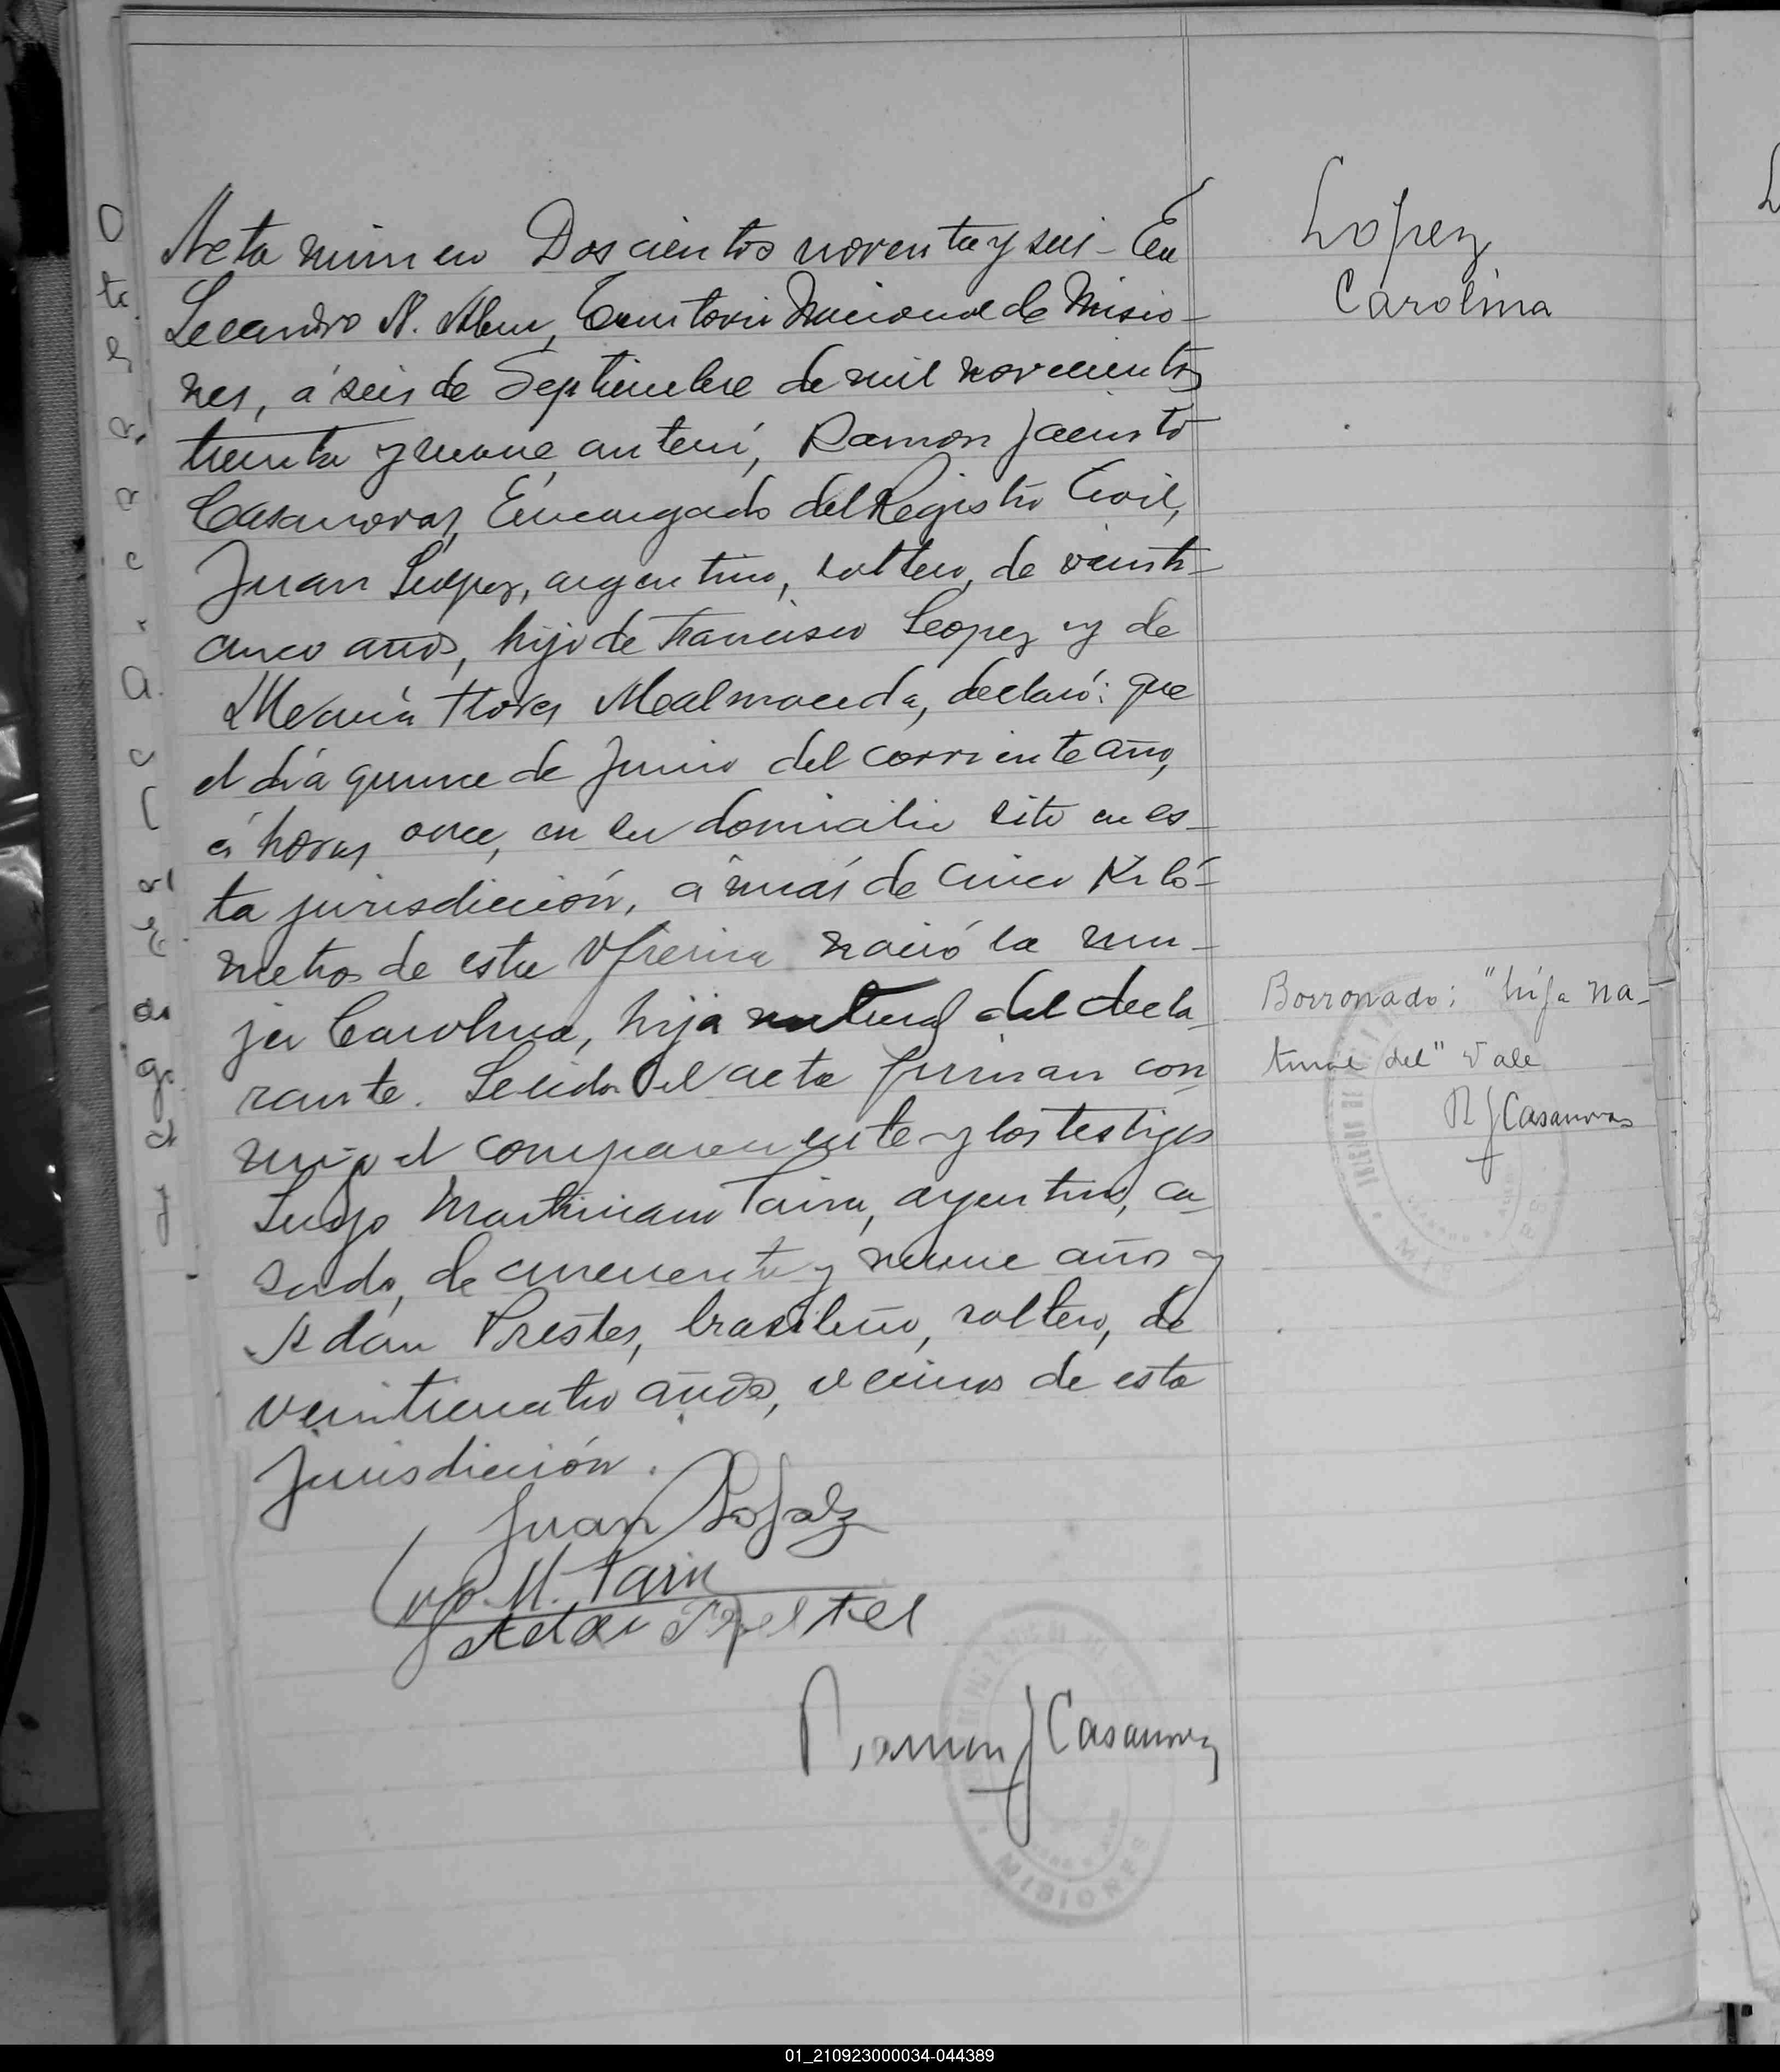 Acta número Doscientos noventa y seis - En
Leandro N. Alem, Territorio Nacional de Misio-
nes, á seis de Septiembre de mil novecientos
treinta y nueve, ante mí, Ramon Jacinto
Casanovas, Encargado del Registro Civil,
Juan Lopez, argentino, soltero, de veinti-
cinco años, hijo de Francisco Lopez y de
María Flores Maldonado, declaró: que
el día quince de Junio del corriente año,
á horas once, en su domicilio sito en es-
ta jurisdicción, á más de cinco Kiló-
metros de esta Oficina nació la mu-
jer Carolina, hija natural del decla-
rante. Leída el acta firman con-
migo el compareciente y los testigos
Martiniano Taira, argentino, ca-
sado, de cincuenta y nueve años y
Adán Prestes, brasileño, soltero, de
veinticuatro años, vecinos de esta
jurisdicción.
Juan
Ramon J Casanovas
Lopez
Carolina
Borronado: "hija na-
tural del" Vale
R J Casanovas
MISIONES
01_210923000034-044389